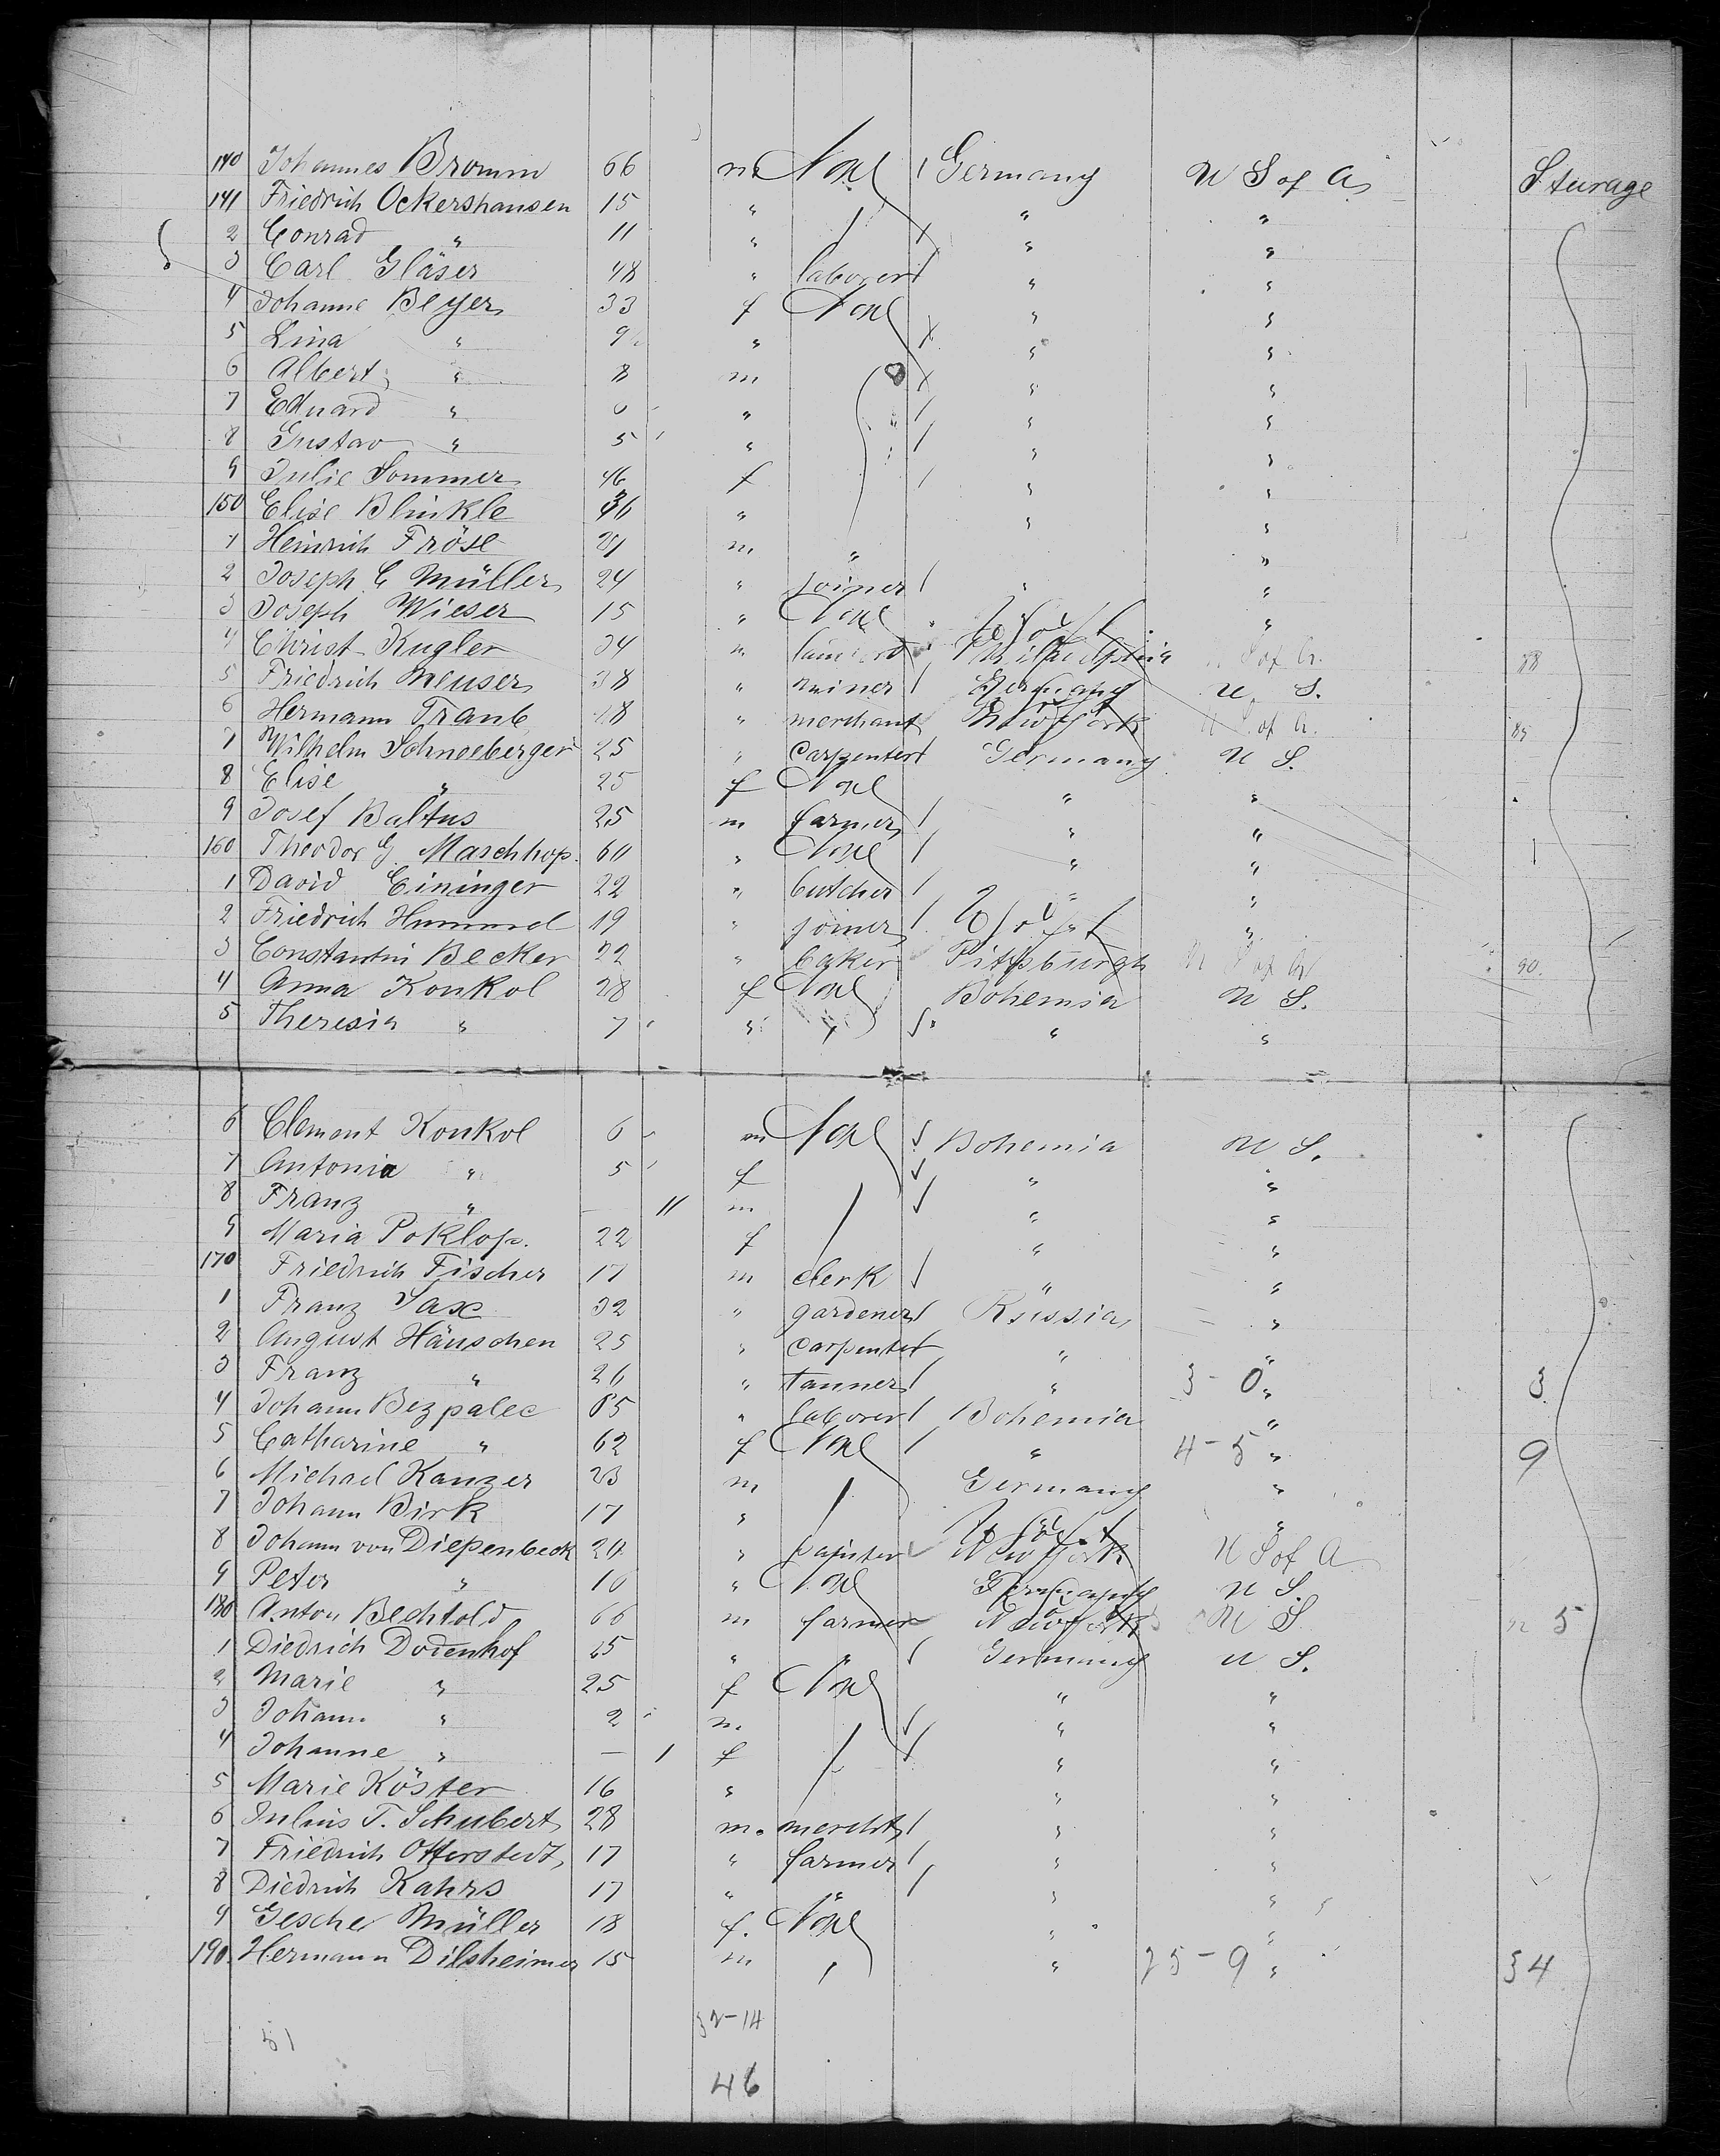 140 Johannes Bromm 66 m None Germany U S of A Sturage
141 Friedrich Ockershausen 15 " " "
2 Conrad " 11 " " "
3 Carl Gläser 48 " laborer " "
4 Johanne Beyer 33 f None " "
5 Lina " 9 " " "
6 Albert " 8 m " "
7 Eduard " 6 " " "
8 Gustav " 5 " " "
9 Julie Sommer 46 f " "
150 Elise Blinkle " " "
1 Heinrich Fröse 21 m " "
2 Joseph C Müller 24 " joiner " "
3 Joseph Wieser 15 " None "
4 Christ Kugler 34 " Philadelphia U S of A. 88
5 Friedrich Meuser 38 " miner Germany U S.
6 Hermann Traub 48 " merchant New York U S of A. 89
7 Wilhelm Schneeberger 25 " carpenter Germany U S.
8 Elise " 25 f None " "
9 Josef Baltus 25 m farmer " "
160 Theodor G. Maschhop. 60 " None " "
1 David Eininger 22 " butcher " "
2 Friedrich Hummel 19 " joiner "
3 Constantin Becker 22 " baker Pittsburgh U S of A 90.
4 Anna Konkol 28 f None Bohemia U S.
5 Theresia " 7 " " " "
6 Clemont Konkol 6 m None Bohemia U S.
7 Antonia " 5 f " "
8 Franz " — 11 m " "
9 Maria Poklop. 22 f " "
170 Friedrich Fischer 17 m clerk " "
1 Franz Sax 32 " gardener Russia "
2 August Häuschen 25 " carpenter " "
3 Franz " 26 " tanner " 3 - 0 " 3
4 Johann Bezpalec 65 " laborer Bohemia "
5 Catharine " 62 f None " 4 - 5 " 9
6 Michael Kanzer 23 m Germany "
7 Johann Birk 17 " "
8 Johann von Diepenbeck 20 " painter New York U S of A
9 Peter " 10 " None Germany U S.
180 Anton Bechtold 66 m farmer New York U S 5
1 Diedrich Dodenhof 25 " " Germany U S.
2 Marie " 25 f None " "
3 Johann " 2 m " "
4 Johanne " — 1 f " "
5 Marie Köster 16 " " "
6 Julius T. Schubert 28 m. mercht " "
7 Friedrich Otterstedt 17 " farmer " "
8 Diedrich Kahrs 17 " " " "
9 Gesche Müller 18 f. None " "
190. Hermann Dilsheimer 15 m " 25 - 9 " 34
32-14
51
46